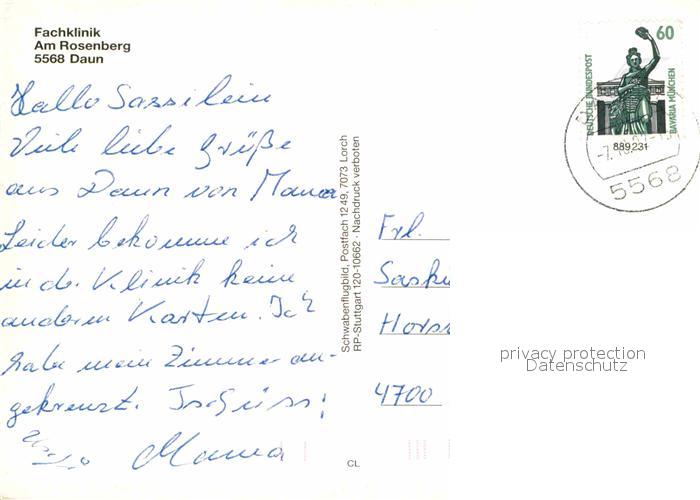 Fachklinik
Am Rosenberg
5568 Daun
Hallo Sassilein
Viele liebe Grüße
aus Daun von Mama
Leider bekomme ich
in der Klinik keine
anderen Karten. Ich
habe mein Zimmer an-
gekreuzt. Tschüss!
Mama
Schwabenflugbild, Postfach 12 49, 7073 Lorch
RP-Stuttgart 120-10662 · Nachdruck verboten
CL
60
DEUTSCHE BUNDESPOST
BAVARIA MÜNCHEN
889231
5568
Frl.
Saski
Horss
4700
privacy protection
Datenschutz